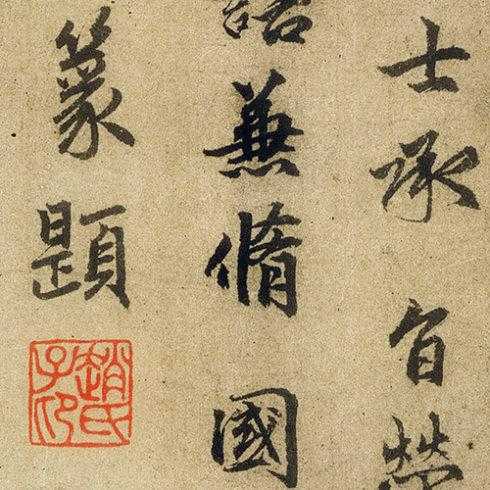 士承旨榮
誥兼脩國
篆題
趙氏子昂